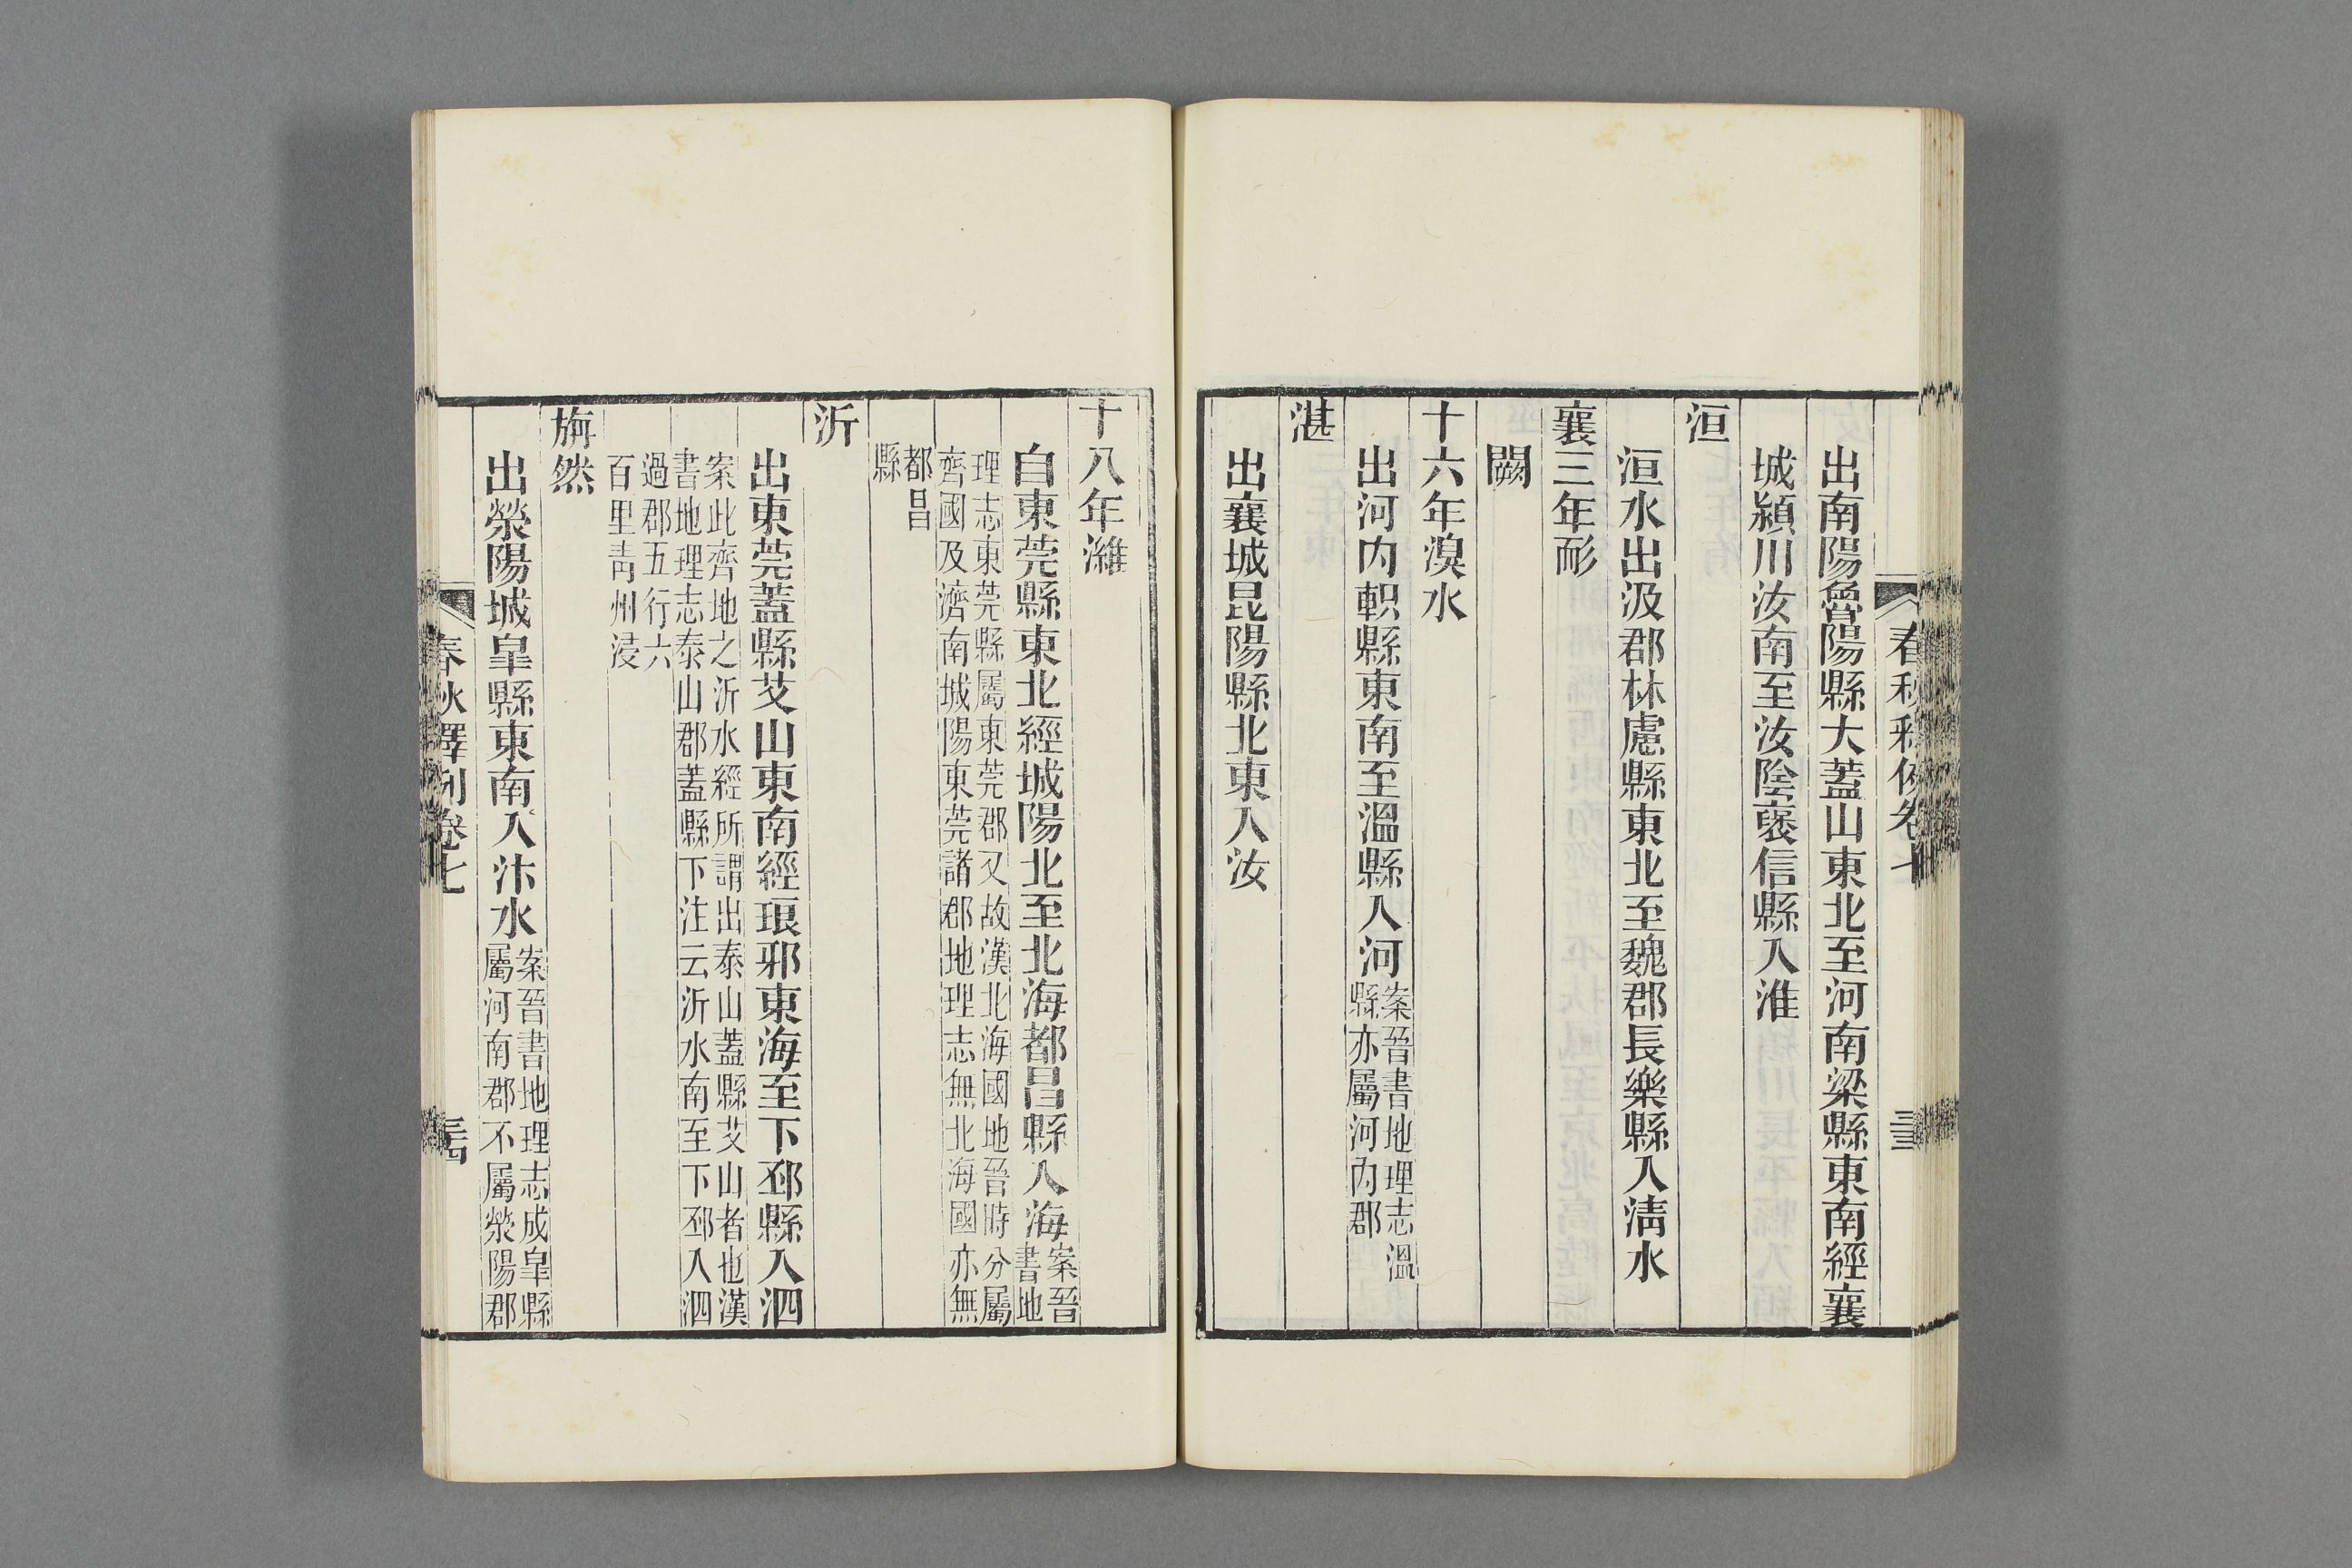 出南陽魯陽縣大蓋山東北至河南梁縣東南經襄
城潁川汝南至汝陰襃信縣入淮
洹
洹水出汲郡林慮縣東北至魏郡長樂縣入淸水
襄三年耏
闕
十六年湨水
出河內軹縣東南至溫縣入河案晉書地理志溫
縣亦屬河內郡
湛
出襄城昆陽縣北東入汝
十八年濰
自東莞縣東北經城陽北至北海都昌縣入海案晉
書地
理志東莞縣屬東莞郡又故漢北海國地晉時分屬
齊國及濟南城陽東莞諸郡地理志無北海國亦無
都昌
縣
沂
出東莞蓋縣艾山東南經琅邪東海至下邳縣入泗
案此齊地之沂水經所謂出泰山蓋縣艾山者也漢
書地理志泰山郡蓋縣下注云沂水南至下邳入泗
過郡五行六
百里靑州浸
旃然
出滎陽城皐縣東南入汴水案晉書地理志成皐縣
屬河南郡不屬滎陽郡
春秋釋例卷七
三四